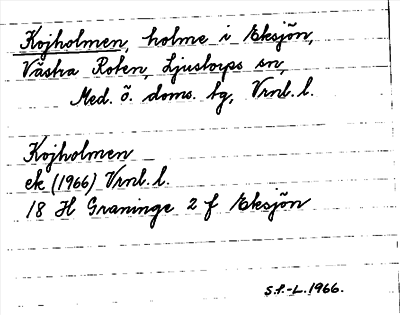 Kojholmen, holme i Eksjön,
Västra Roten, Ljustorps sn,
Med. ö. doms. tg, Vrnl. l.
Kojholmen
ek (1966) Vrnl. l.
18 H Graninge 2 f Eksjön
S.F.-L. 1966.